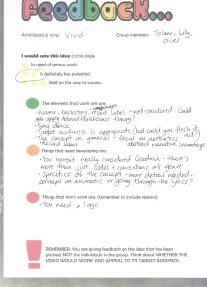 Feedback...
Artist/Band & vote: Vivid
Group members: Tolani, Lily,
Oliver
I would rate this idea (circle one):
In need of serious work.
It definitely has potential.
Well on the way to success.
The elements that work are are:
• Name, backstory, band label - well-considered. Could
you apply Adorno/Horkheimer theory?
• Song choice
• Target audience is appropriate (but could you flesh it
out?)
• The concept in general - focus on aesthetics
• Record label
abstract narrative/montage
Things that need developing are:
• You haven't really considered Goodwin - there's
more than just codes & conventions there.
• Specifics of the concept - more detail needed -
perhaps an animatic or going through the lyrics?
Things that don't work are (remember to include reasons)
• You need a logo
REMEMBER: You are giving feedback on the idea that has been
pitched, NOT the individuals in the group. Think about WHETHER THE
VIDEO WOULD WORK AND APPEAL TO ITS TARGET AUDIENCE.